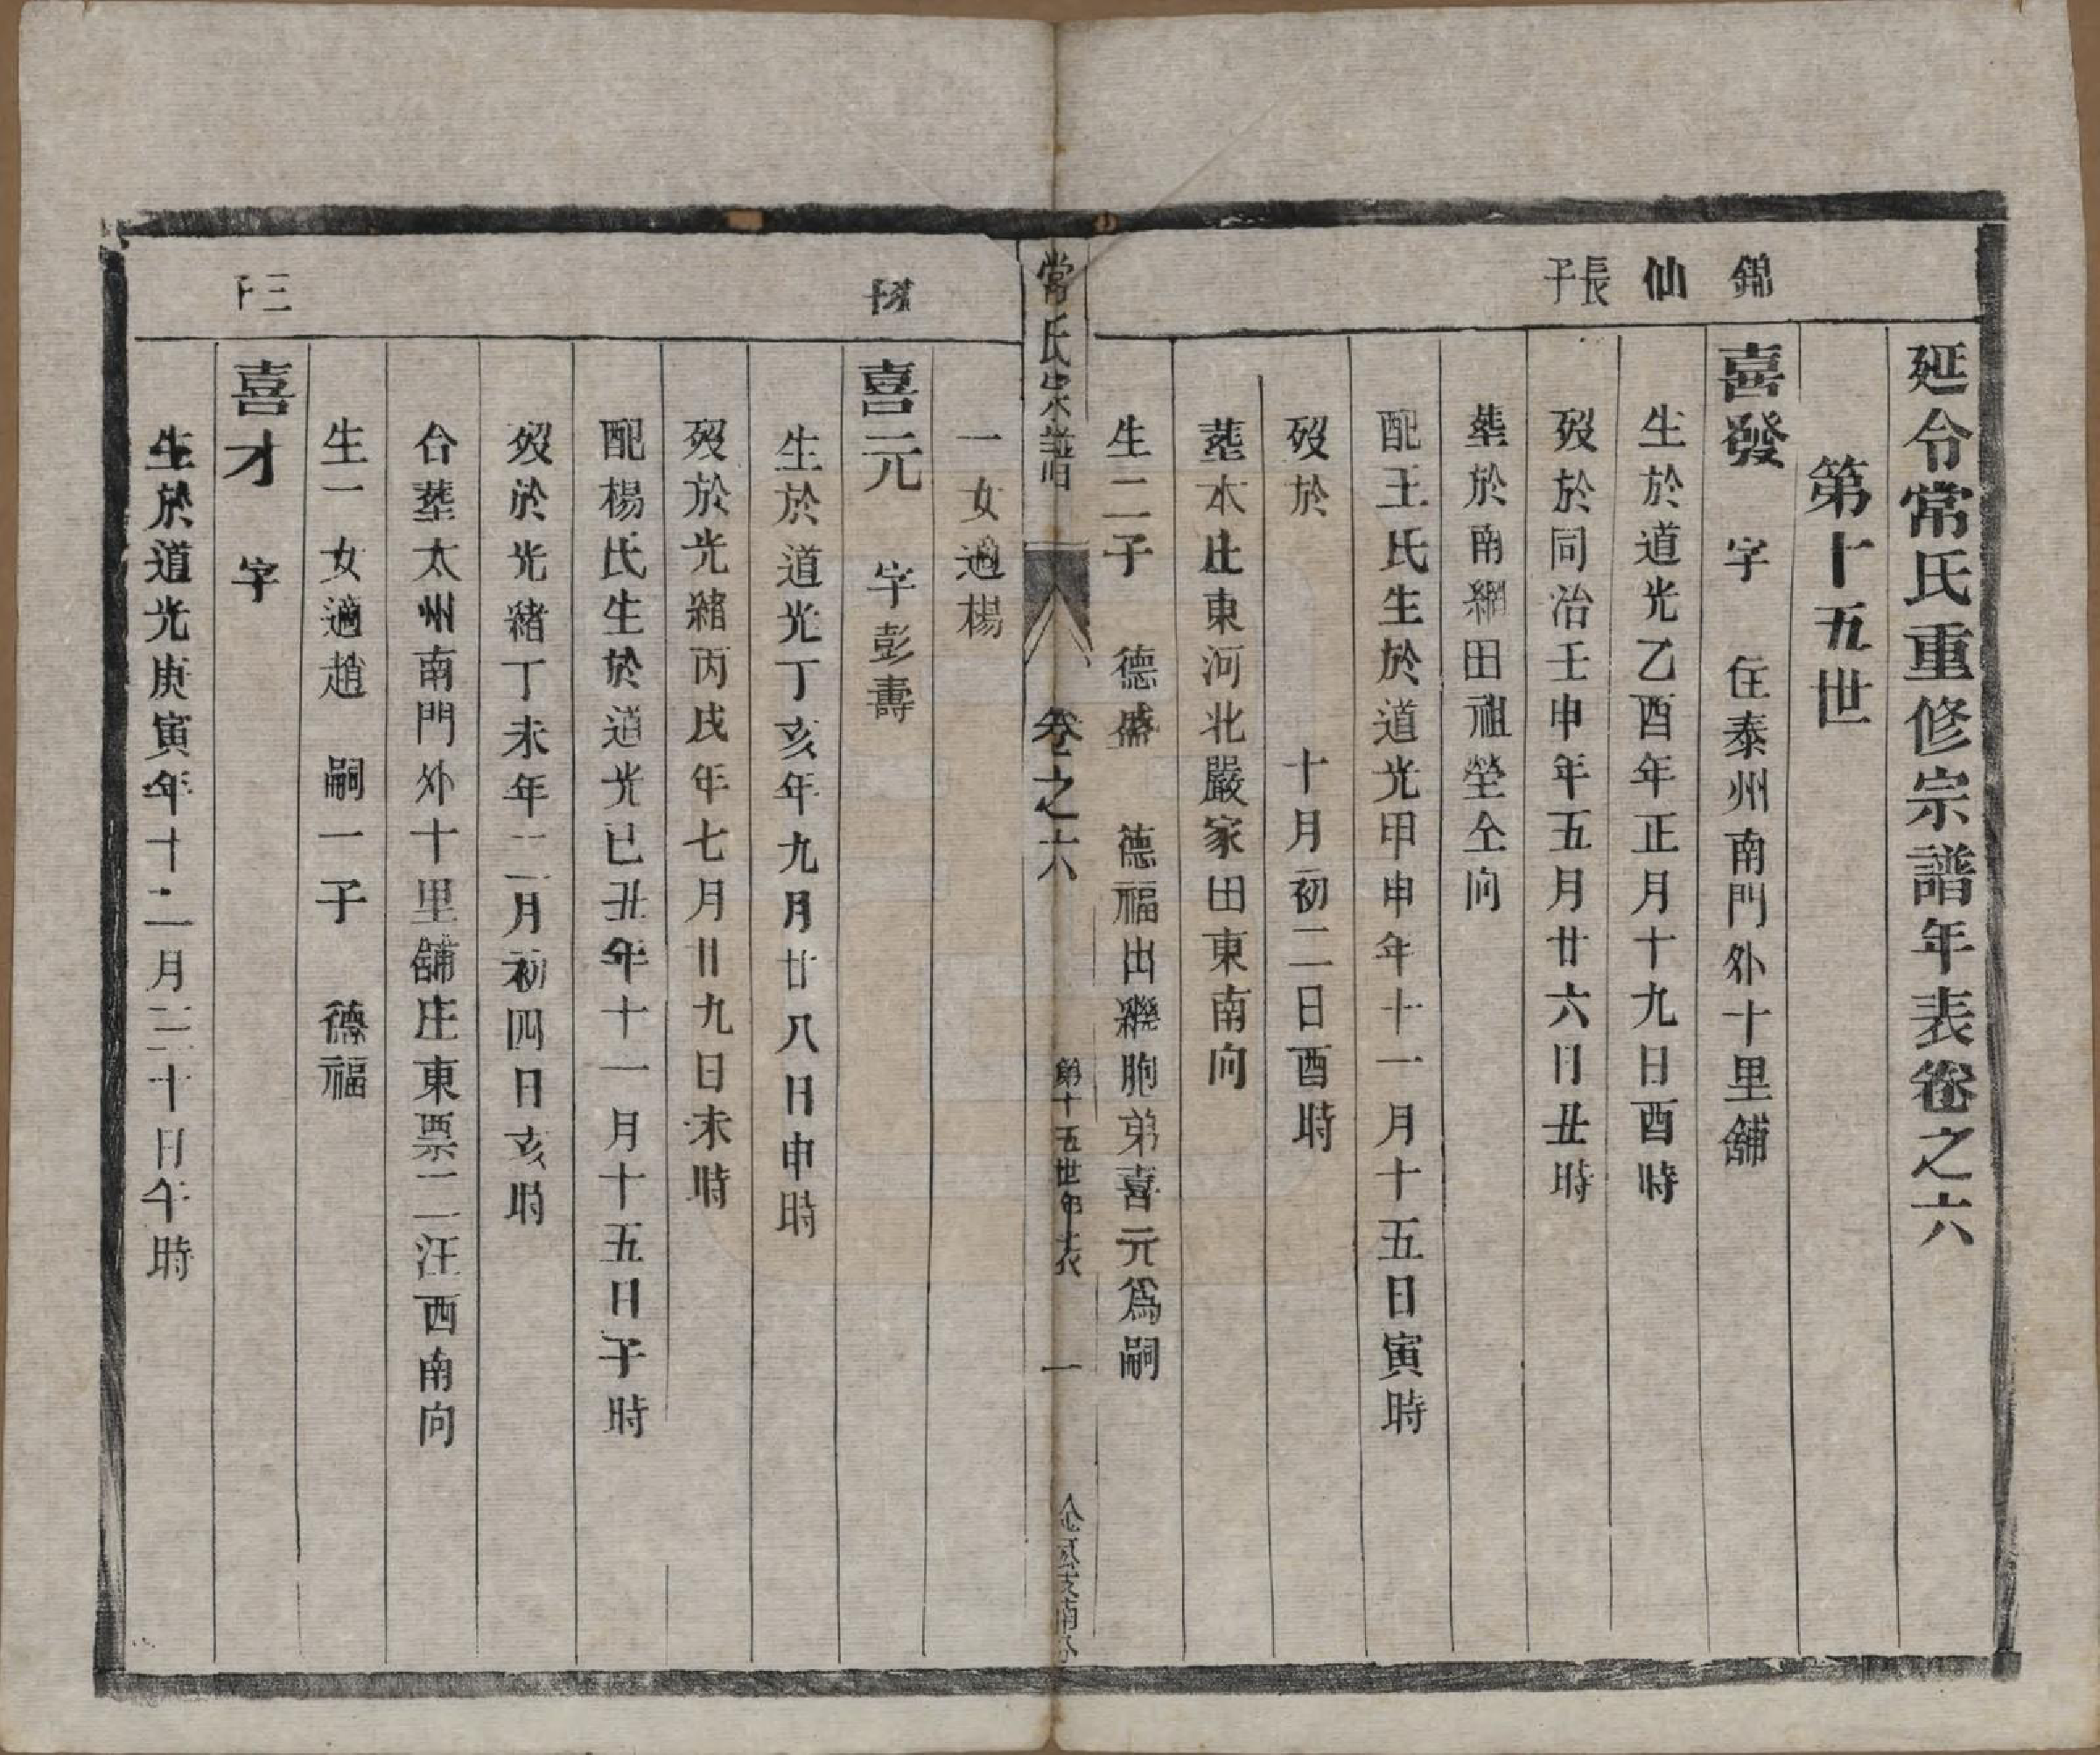 延令常氏重修宗譜年表卷之六
第十五世
錦
喜發 字 住泰州南門外十里舖
仙
生於道光乙酉年正月十九日酉時
長子
歿於同治壬申年五月廿六日丑時
塟於南網田祖塋仝向
配王氏生於道光甲申年十一月十五日寅時
歿於 十月初二日酉時
塟本庄東河北嚴家田東南向
生二子 德盛 德福出繼胞弟喜元爲嗣
常氏宗譜 卷之六 第十五世年表 一
一女適楊
喜元 字彭壽
生於道光丁亥年九月廿八日申時
歿於光緒丙戌年七月廿九日未時
配楊氏生於道光已丑年十一月十五日子時
歿於光緒丁未年二月初四日亥時
合塟太州南門外十里舖庄東票二汪西南向
生一女適趙 嗣一子 德福
三子
喜才 字
生於道光庚寅年十二月三十日午時